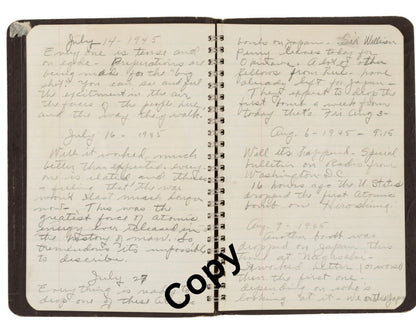 July 14 - 1945
Every one is tense and
on edge - Preparations are
being made for the "big
shot" You can see and feel
the excitement in the air
the faces of the people here
and the way they walk.
July 16 - 1945
Well it worked, much
better than expected. Every
one is elated and there
a feeling that the war
wont last much longer
now - This was the
greatest force of atomic
energy ever released in
the history of man. So
tremendous its impossible
to describe.
July 27
Everything is ready to
drop one of these
bombs on Japan - William
Penny leaves today for
A lot of other
fellows from here have
already left for Japan -
They expect to drop the
first bomb a week from
today that's Fri Aug 3 -
Aug. 6 - 1945 - 9:15
Well its happened - Special
bulletin on Radio from
Washington DC
16 hours ago the U States
dropped the first Atomic
bomb at Hiroshima
Aug. 9 - 1945
Another bomb was
dropped on Japan this
time at Nagasaki -
It worked better (or worse)
than the first one -
depending on who's
looking at it - We or the Japs
Copy